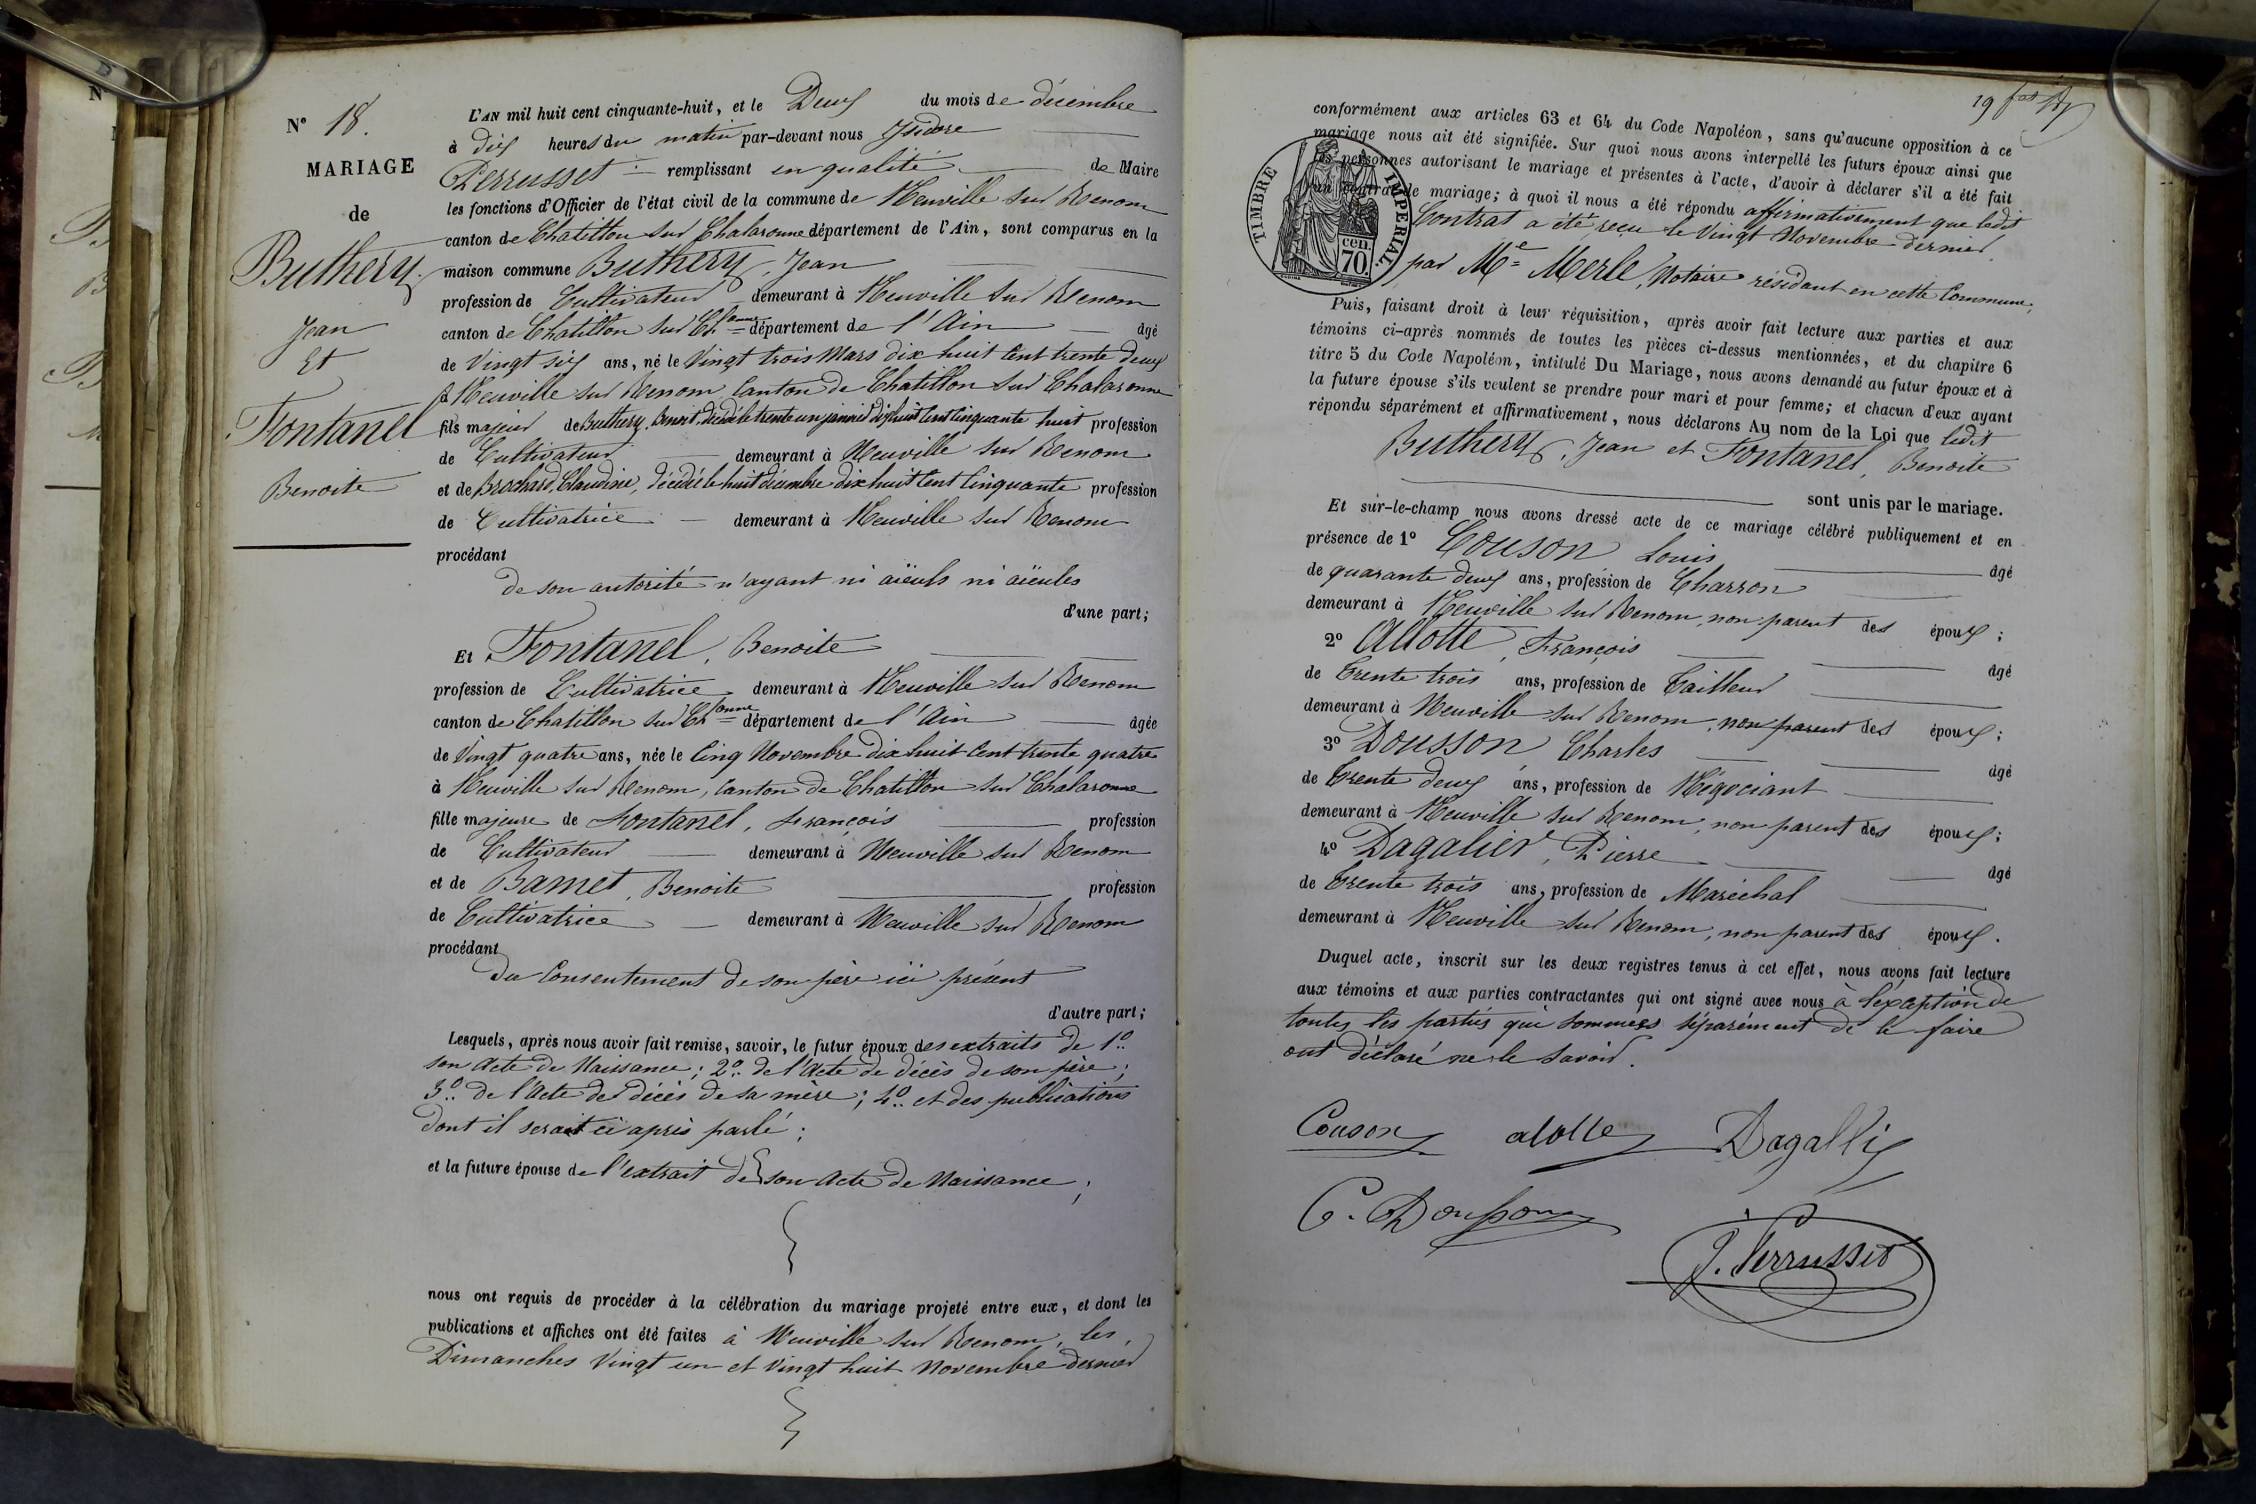 Nº 18.
MARIAGE
de
Buthery
Jean
Et
Fontanel
Benoite
L'AN mil huit cent cinquante-huit, et le Deux du mois de décembre
à dix heures du matin par-devant nous Isidore
Perrusset remplissant en qualité de Maire
les fonctions d'Officier de l'état civil de la commune de Neuville sur Renom
canton de Chatillon sur Chalaronne département de l'Ain, sont comparus en la
maison commune Buthery, Jean
profession de Cultivateur demeurant à Neuville sur Renom
canton de Chatillon sur Chlaronne département de l'Ain âgé
de Vingt six ans, né le Vingt trois Mars dix huit Cent trente deux
à Neuville sur Renom Canton de Chatillon sur Chalaronne
fils majeur de Buthery, Benoit, décédé le trente un janvier dix huit Cent Cinquante huit profession
de Cultivateur demeurant à Neuville sur Renom
et de Brochard, Claudine, décédée le huit décembre dix huit Cent Cinquante profession
de Cultivatrice demeurant à Neuville sur Renom
procédant
de son autorité n'ayant ni aïeuls ni aïeules
d'une part;
Et Fontanel, Benoite
profession de Cultivatrice demeurant à Neuville sur Renom
canton de Chatillon sur Chlaronne département de l'Ain âgée
de Vingt quatre ans, née le Cinq Novembre dix huit Cent trente quatre
à Neuville sur Renom, Canton de Chatillon sur Chalaronne
fille majeure de Fontanel, François profession
de Cultivateur demeurant à Neuville sur Renom
et de Bamet, Benoite profession
de Cultivatrice demeurant à Neuville sur Renom
procédant
du Consentement de son père ici présent
d'autre part;
Lesquels, après nous avoir fait remise, savoir, le futur époux des extraits de 1º
son Acte de Naissance; 2º de l'Acte de décès de son père;
3º de l'Acte de décès de sa mère; 4º et des publications
dont il serait ci après parlé;
et la future épouse de l'extrait de son Acte de Naissance;
nous ont requis de procéder à la célébration du mariage projeté entre eux, et dont les
publications et affiches ont été faites à Neuville sur Renom, les
Dimanches Vingt un et Vingt huit Novembre dernier
19
conformément aux articles 63 et 64 du Code Napoléon, sans qu'aucune opposition à ce
mariage nous ait été signifiée. Sur quoi nous avons interpellé les futurs époux ainsi que
les personnes autorisant le mariage et présentes à l'acte, d'avoir à déclarer s'il a été fait
un contrat de mariage; à quoi il nous a été répondu affirmativement que ledit
Contrat a été reçu le Vingt Novembre dernier
par Me Merle, Notaire résidant en cette Commune,
TIMBRE IMPERIAL.
70.
cen.
Puis, faisant droit à leur réquisition, après avoir fait lecture aux parties et aux
témoins ci-après nommés de toutes les pièces ci-dessus mentionnées, et du chapitre 6
titre 5 du Code Napoléon, intitulé Du Mariage, nous avons demandé au futur époux et à
la future épouse s'ils veulent se prendre pour mari et pour femme; et chacun d'eux ayant
répondu séparément et affirmativement, nous déclarons Au nom de la Loi que ledit
Buthery, Jean et Fontanel, Benoite
sont unis par le mariage.
Et sur-le-champ nous avons dressé acte de ce mariage célébré publiquement et en
présence de 1º Couson Louis âgé
de quarante deux ans, profession de Charron
demeurant à Neuville sur Renom, non parent des époux;
2º Allotte, François âgé
de trente trois ans, profession de Tailleur
demeurant à Neuville sur Renom, non parent des époux;
3º Dousson Charles âgé
de trente deux ans, profession de Négociant
demeurant à Neuville sur Renom, non parent des époux;
4º Dagalier, Pierre âgé
de trente trois ans, profession de Maréchal
demeurant à Neuville sur Renom, non parent des époux.
Duquel acte, inscrit sur les deux registres tenus à cet effet, nous avons fait lecture
aux témoins et aux parties contractantes qui ont signé avec nous à l'exception de
toutes les parties qui sommées séparément de le faire
ont déclaré ne le savoir.
Couson alotte Dagallier
C. Dousson
J. Perrusset